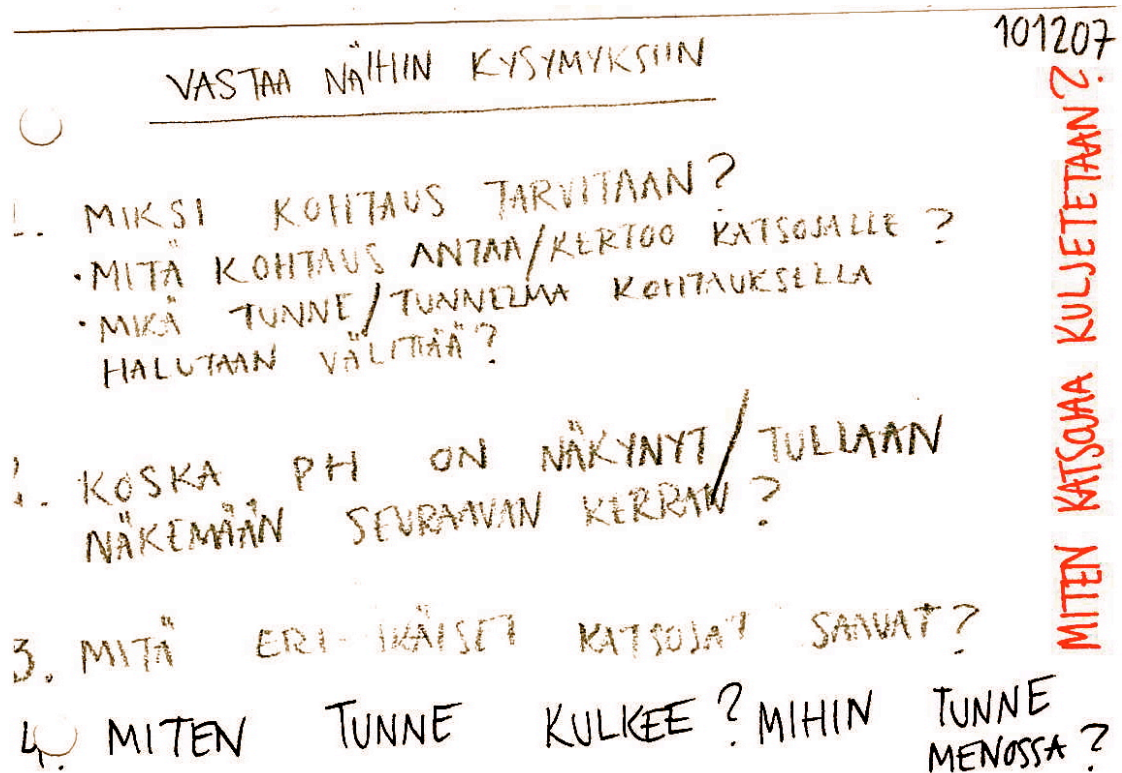 101207
VASTAA NÄIHIN KYSYMYKSIIN
1. MIKSI KOHTAUS TARVITAAN?
• MITÄ KOHTAUS ANTAA/KERTOO KATSOJALLE?
• MIKÄ TUNNE/TUNNELMA KOHTAUKSELLA
HALUTAAN VÄLITTÄÄ?
2. KOSKA PH ON NÄKYNYT/TULLAAN
NÄKEMÄÄN SEURAAVAN KERRAN?
3. MITÄ ERI-IKÄISET KATSOJAT SAAVAT?
4. MITEN TUNNE KULKEE? MIHIN TUNNE
MENOSSA?
MITEN KATSOJAA KULJETETAAN?